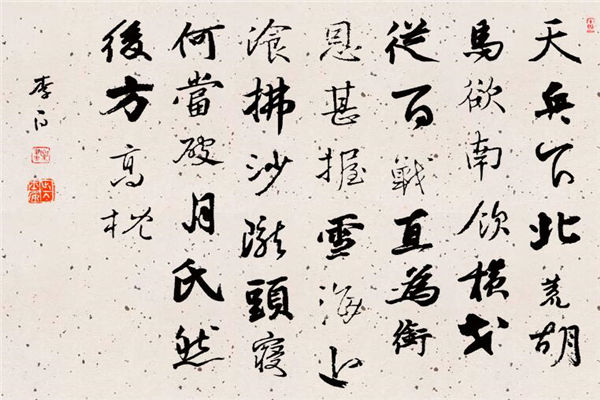 天兵下北荒胡
馬欲南飲橫戈
從百戰直為銜
恩甚握雪海上
湌拂沙隴頭寢
何當破月氏然
後方高枕
李白